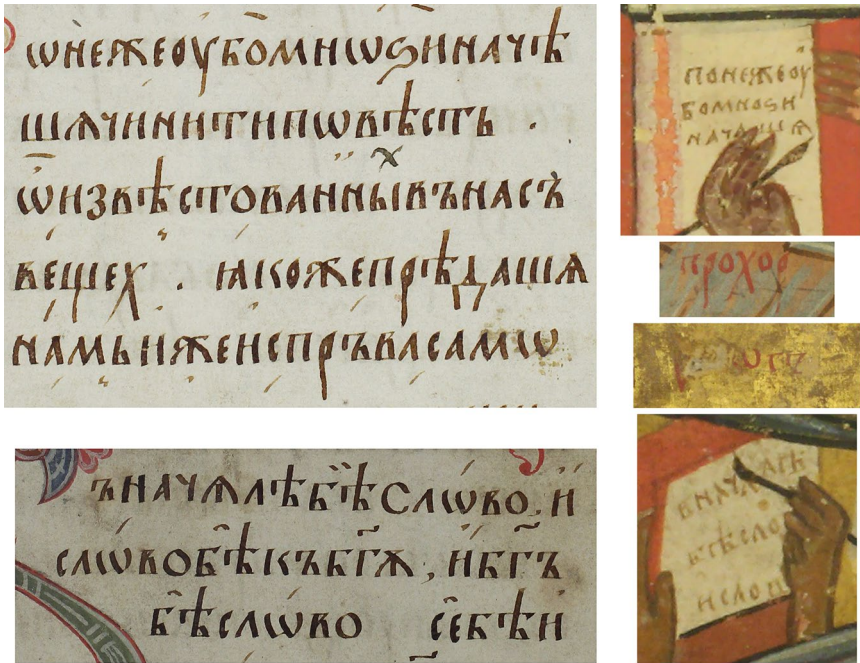 ѡнежеоубомнѡѕиначѣ
шѧчинитиповѣсть .
ѿизвѣстованныхвънасъ
вещех . ꙗкожепрѣдашѧ
намьижеиспръвасамѡ
ъначѧлѣбѣ҄слѡво, и
слѡвобѣкъбг҃ꙋ , ибг҃ъ
бѣслѡво се҄бѣи
понежеоу
бомноѕи
начашѧ
прохор
внача
бѣсло
исло